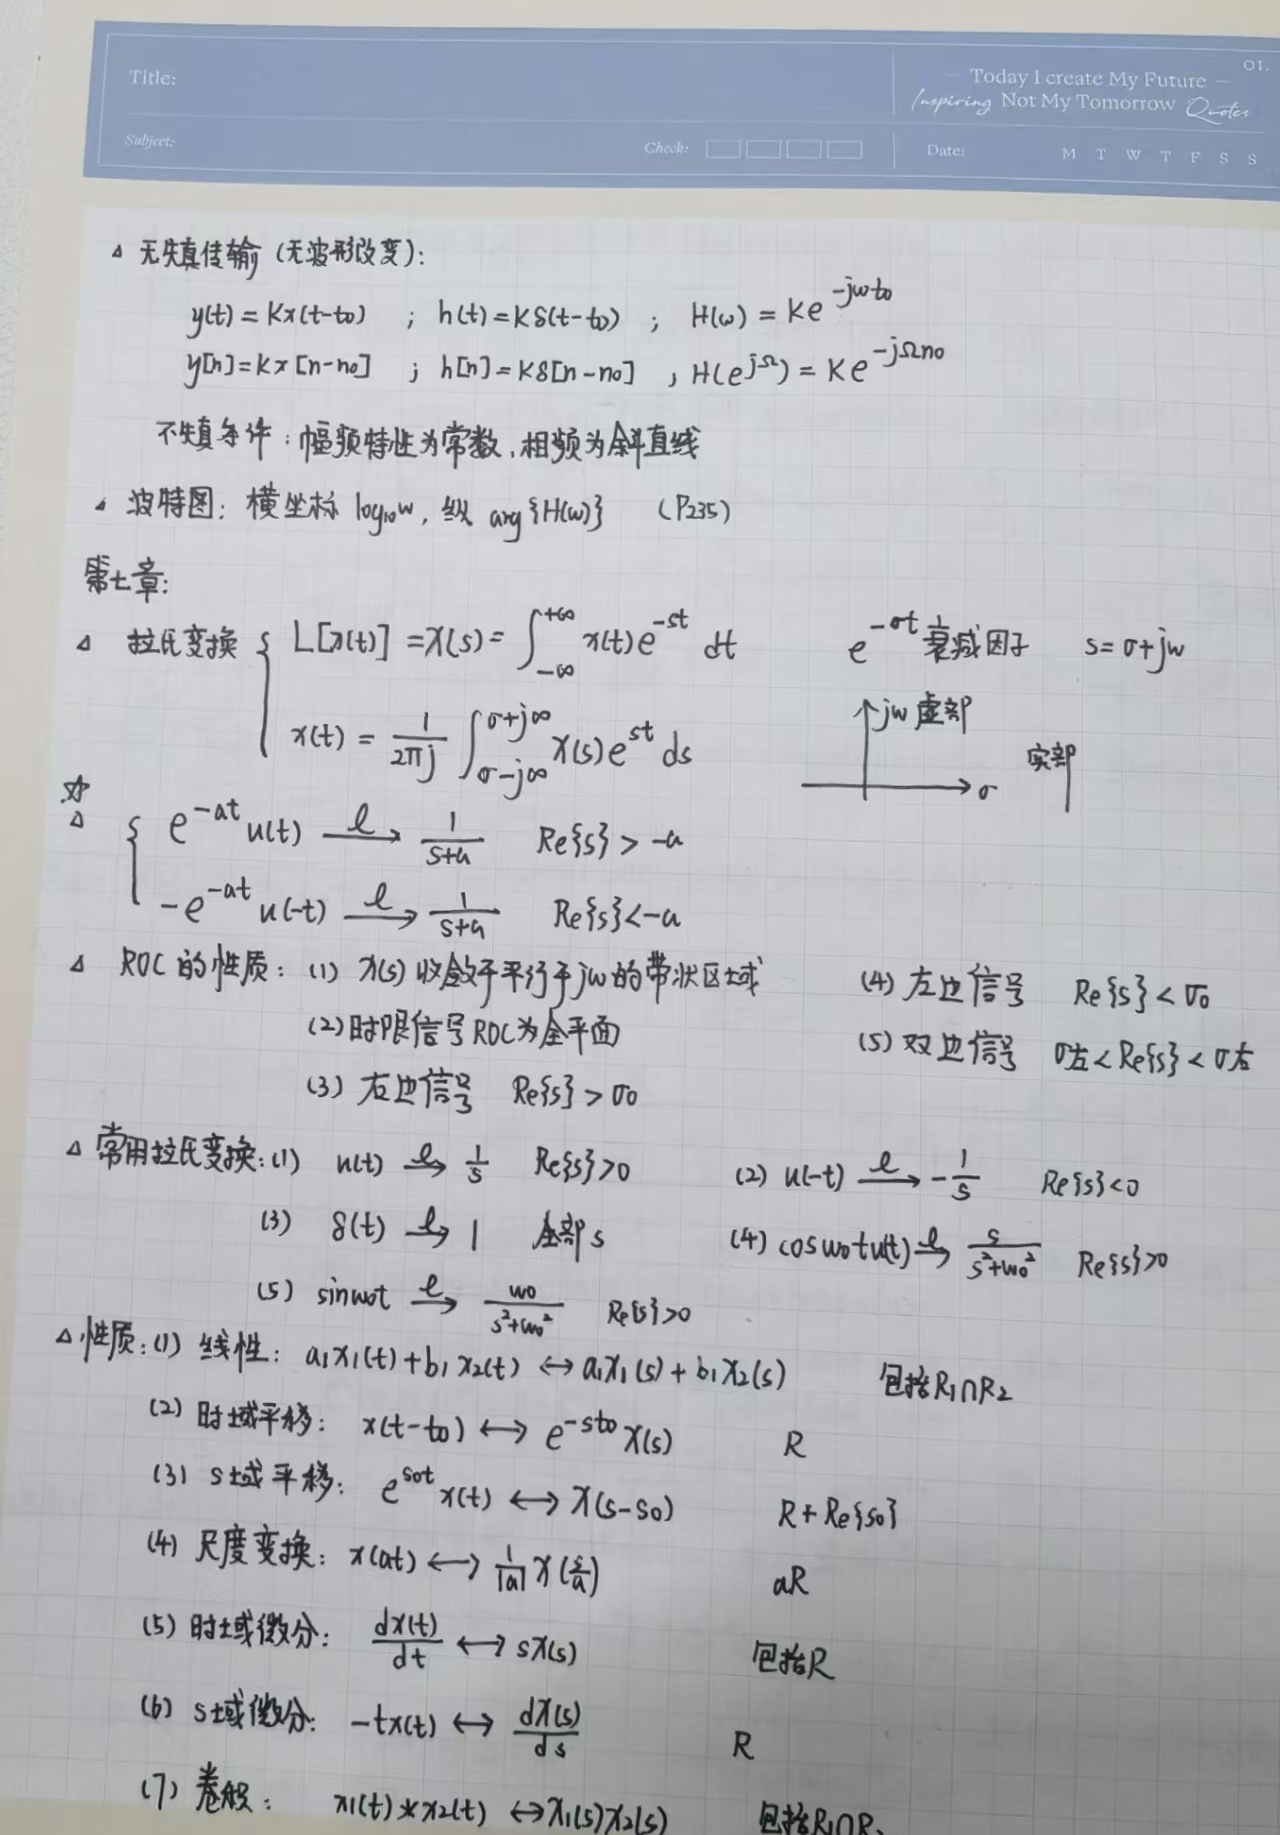 Title:
01.
Today I create My Future
Inspiring Not My Tomorrow Quotes
Subject:
Check:
Date:
M T W T F S S
△ 无失真传输 (无波形改变):
y(t) = Kx(t-t₀) ; h(t) = Kδ(t-t₀) ; H(ω) = Ke^{-jωt₀}
y[n] = Kx[n-n₀] ; h[n] = Kδ[n-n₀] , H(e^{jΩ}) = Ke^{-jΩn₀}
不失真条件: 幅频特性为常数, 相频为斜直线
△ 波特图: 横坐标 log₁₀ω, 纵 arg{H(ω)} (P235)
第七章:
△ 拉氏变换 { L[x(t)] = X(s) = ∫_{-∞}^{+∞} x(t)e^{-st} dt e^{-σt} 衰减因子 s=σ+jω
x(t) = \frac{1}{2πj} ∫_{σ-j∞}^{σ+j∞} X(s)e^{st} ds
jω 虚部
σ
实部
☆
△ { e^{-at}u(t) \xrightarrow{ℓ} \frac{1}{s+a} Re{s} > -a
-e^{-at}u(-t) \xrightarrow{ℓ} \frac{1}{s+a} Re{s} < -a
△ ROC的性质: (1) X(s)收敛于平行于jω的带状区域 (4) 左边信号 Re{s} < σ₀
(2) 时限信号ROC为全平面 (5) 双边信号 σ左 < Re{s} < σ右
(3) 右边信号 Re{s} > σ₀
△ 常用拉氏变换: (1) u(t) \xrightarrow{ℓ} \frac{1}{s} Re{s}>0 (2) u(-t) \xrightarrow{ℓ} -\frac{1}{s} Re{s}<0
(3) δ(t) \xrightarrow{ℓ} 1 全部s (4) cosω₀tu(t) \xrightarrow{ℓ} \frac{s}{s²+ω₀²} Re{s}>0
(5) sinω₀t \xrightarrow{ℓ} \frac{ω₀}{s²+ω₀²} Re{s}>0
△ 性质: (1) 线性: a₁x₁(t)+b₁x₂(t) ↔ a₁X₁(s)+b₁X₂(s) 包括R₁∩R₂
(2) 时域平移: x(t-t₀) ↔ e^{-st₀}X(s) R
(3) s域平移: e^{s₀t}x(t) ↔ X(s-s₀) R+Re{s₀}
(4) 尺度变换: x(at) ↔ \frac{1}{|a|}X(\frac{s}{a}) aR
(5) 时域微分: \frac{dx(t)}{dt} ↔ sX(s) 包括R
(6) s域微分: -tx(t) ↔ \frac{dX(s)}{ds} R
(7) 卷积: x₁(t)*x₂(t) ↔ X₁(s)X₂(s) 包括R₁∩R₂